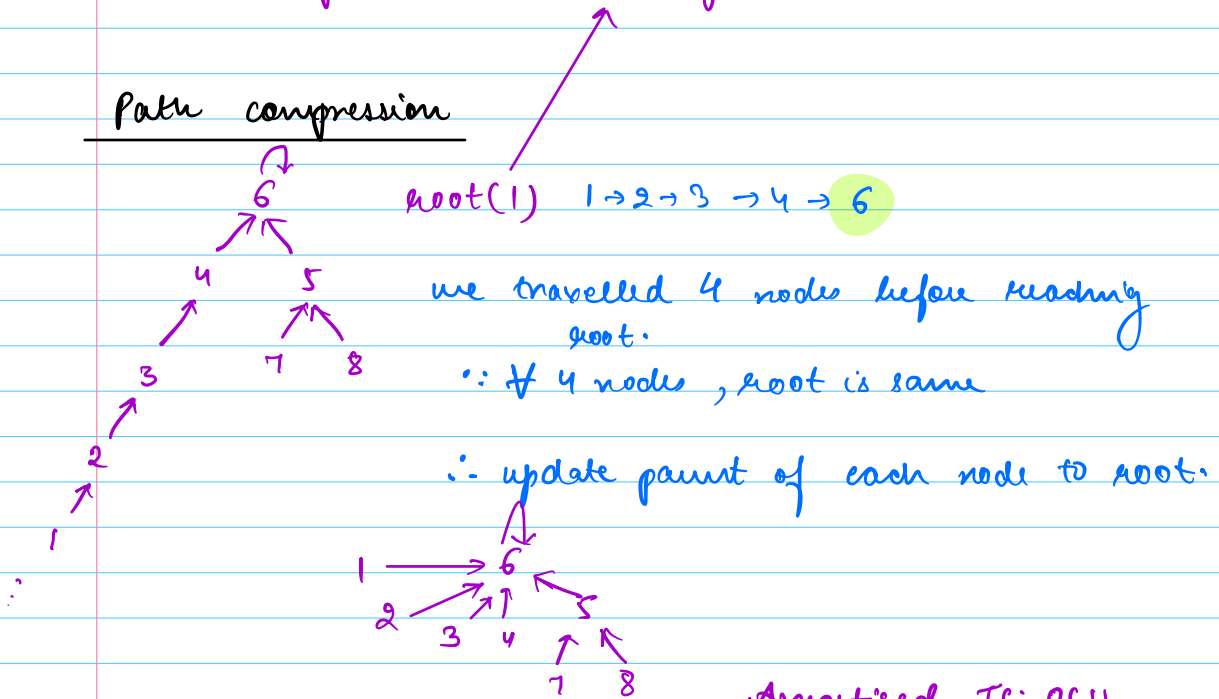 Path compression
6
root(1) 1→2→3→4→6
4 5
we travelled 4 nodes before reaching
root.
3 7 8
∵ ∀ 4 nodes, root is same
2
∴ update parent of each node to root.
1
1 6
2 3 4 5
7 8
Amortised TC: